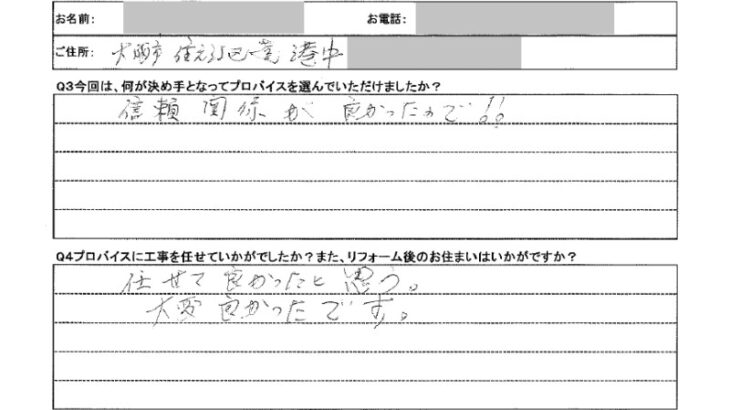 お名前: お電話:
ご住所: 大阪市住之江区南港中
Q3今回は、何が決め手となってプロバイスを選んでいただけましたか?
信頼関係が良かったので!!
Q4プロバイスに工事を任せていかがでしたか?また、リフォーム後のお住まいはいかがですか?
任せて良かったと思う。
大変良かったです。